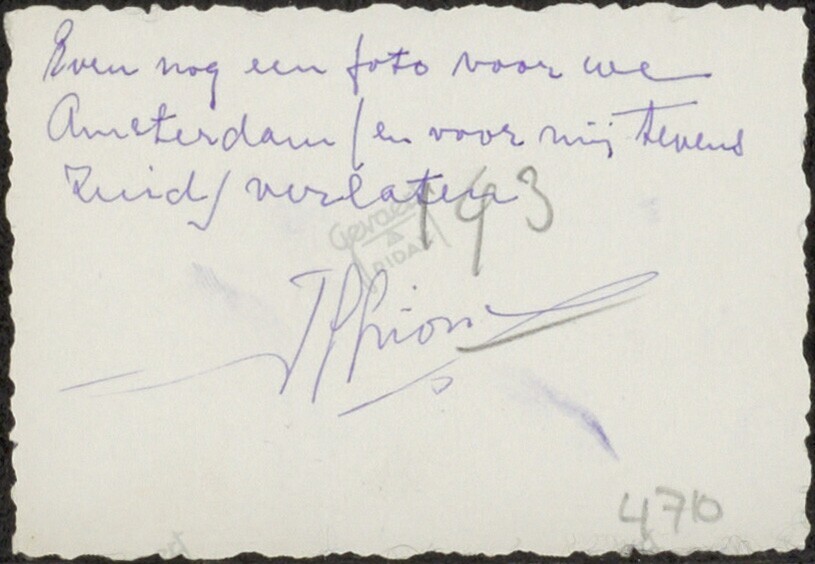 Even nog een foto voor we
Amsterdam (en voor mij tevens
Zuid) verlaten
193
Gevaert
RIDAX
470